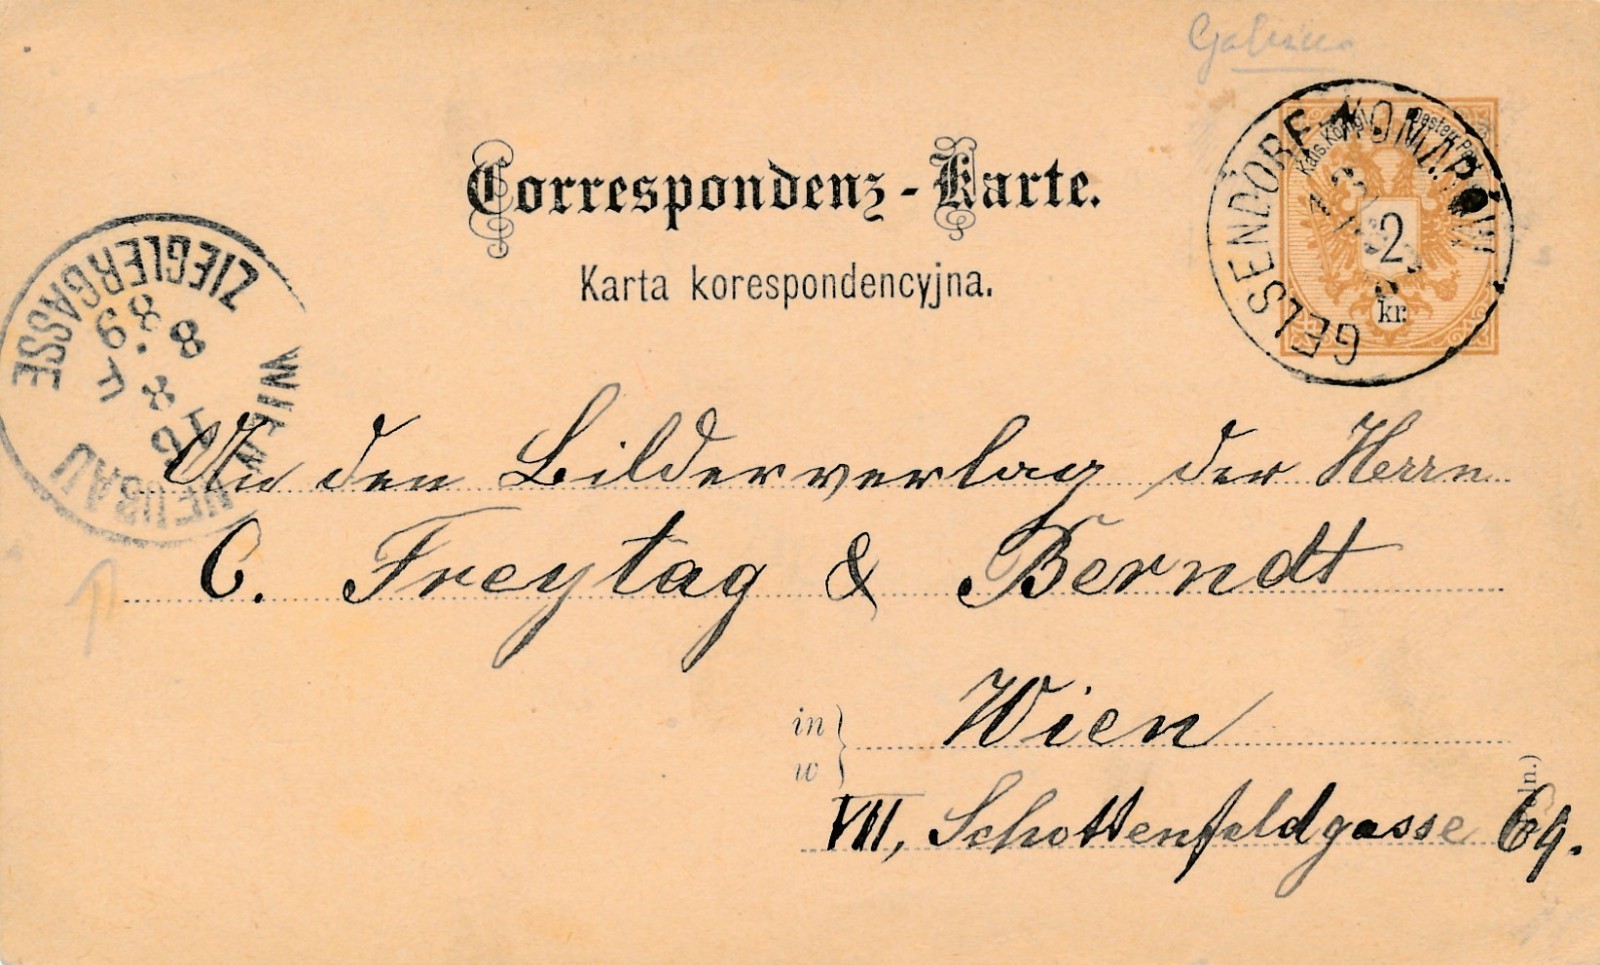 Galizien
Correspondenz-Karte.
Karta korespondencyjna.
GELSENDORF-KOMARÓW
Kais. Königl. Oesterr. Post
2
kr.
WIEN
NEUBAU
ZIEGLERGASSE
An den Bilderverlag der Herrn
C. Freytag & Berndt
in Wien
w
VII, Schottenfeldgasse 64.